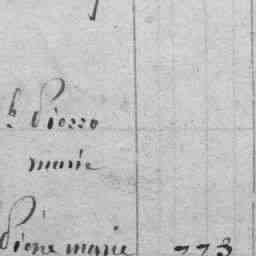 h Pierre
marie
Pierre marie 773